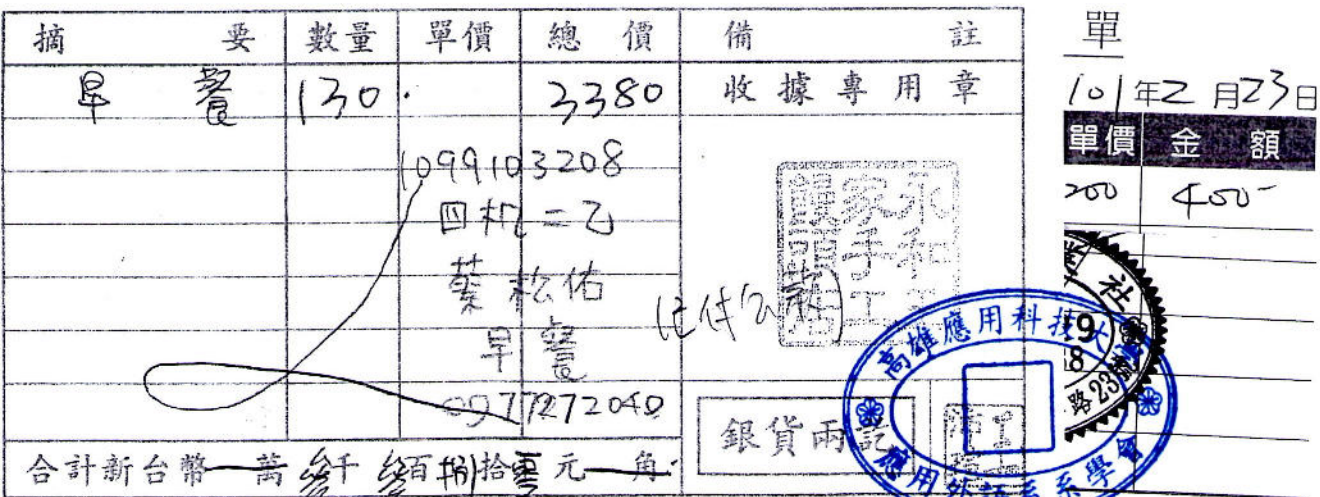 摘 要 數量 單價 總 價 備 註
早 餐 130. 3380 收據專用章
1099103208
四机二乙
松佑
早餐
0977272040
永和
家手工
饅頭店
銀貨兩訖
合計新台幣一萬參千參百捌拾零元一角
單
101年2月23日
單價 金 額
200 400-
社
路23號
高雄應用科技大學
應用外語系系學會